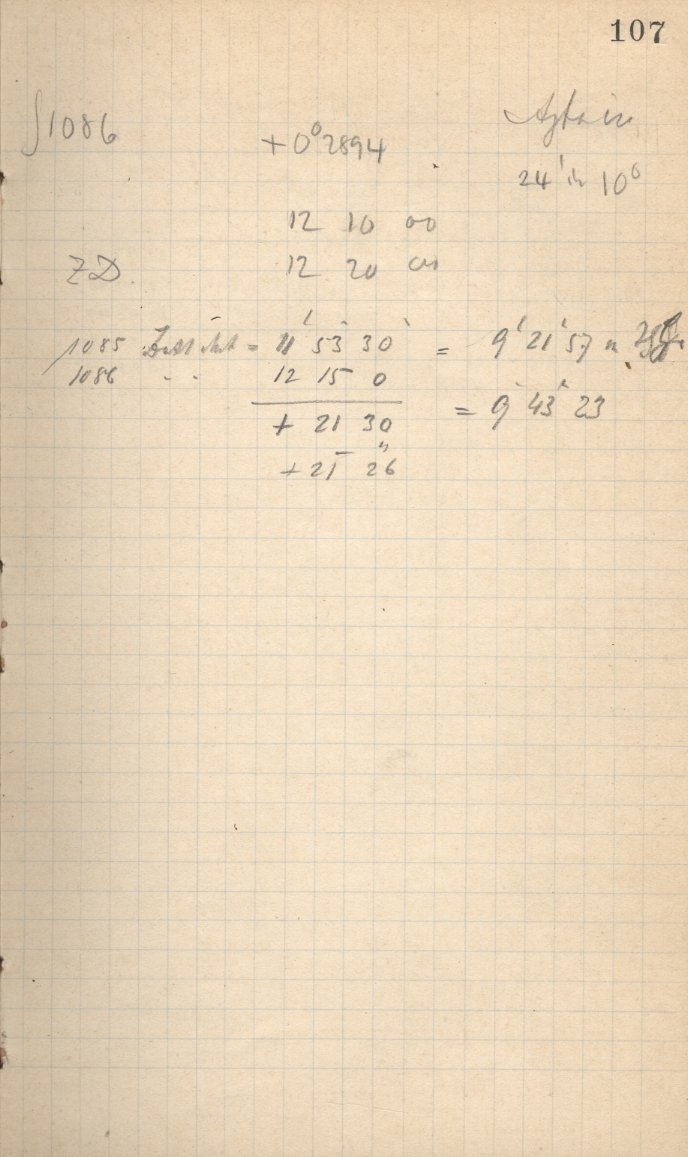 107
∫1086 +0°2894
24' in 10°
12 10 00
ZD. 12 20 00
1085 = 11 53 30 = 9 21 57
1086 . . 12 15 0
+ 21 30 = 9 43 23
+ 21 26